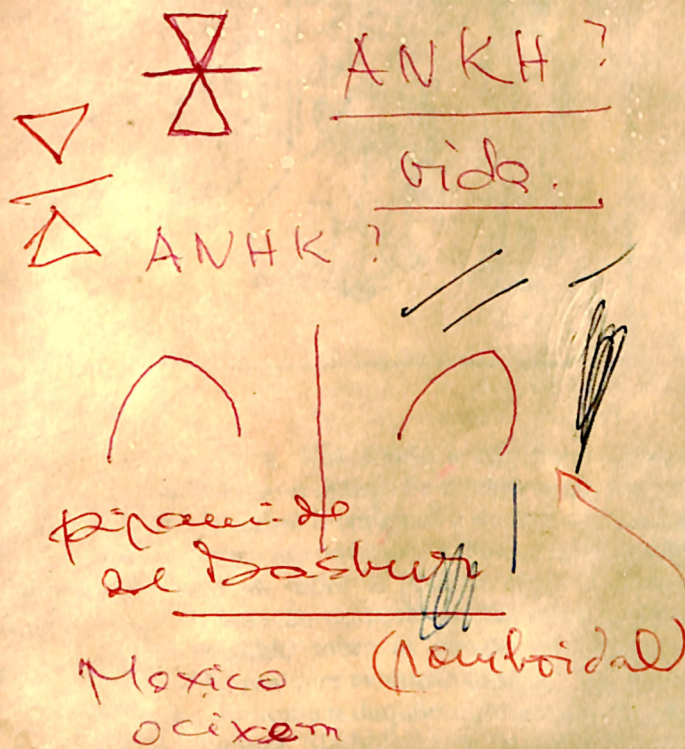 ANKH?
vida.
ANHK?
piramide
de Dasbur
(romboidal)
Mexico
ocixem